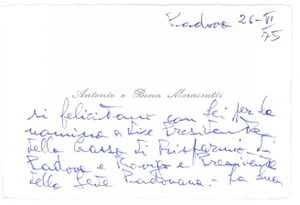 Padova 26-VI
75
Antonio e Bona Morassutti
si felicitano con Lei per la
nomina a Vice Presidente
della Cassa di Risparmio di
Padova e Rovigo e Presidente
della Sede Padovana. - La sua